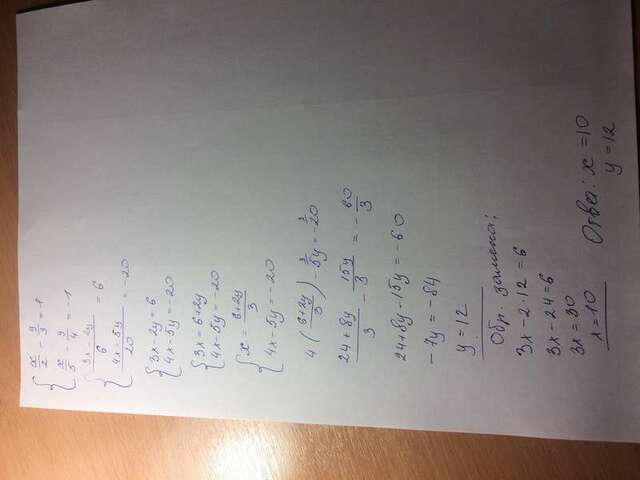 x/2 - y/3 = 1
x/5 - y/4 = -1
3x - 2y/6 = 6
4x - 5y/20 = -20
3x - 2y = 6
4x - 5y = -20
3x = 6 + 2y
4x - 5y = -20
x = 6+2y/3
4x - 5y = -20
4 (6+2y/3) - 5y = -20
24 + 8y/3 - 15y/3 = -60/3
24 + 8y - 15y = -60
-7y = -84
y = 12
Обр. замена:
3x - 2·12 = 6
3x - 24 = 6
3x = 30
x = 10
Ответ: x = 10
y = 12